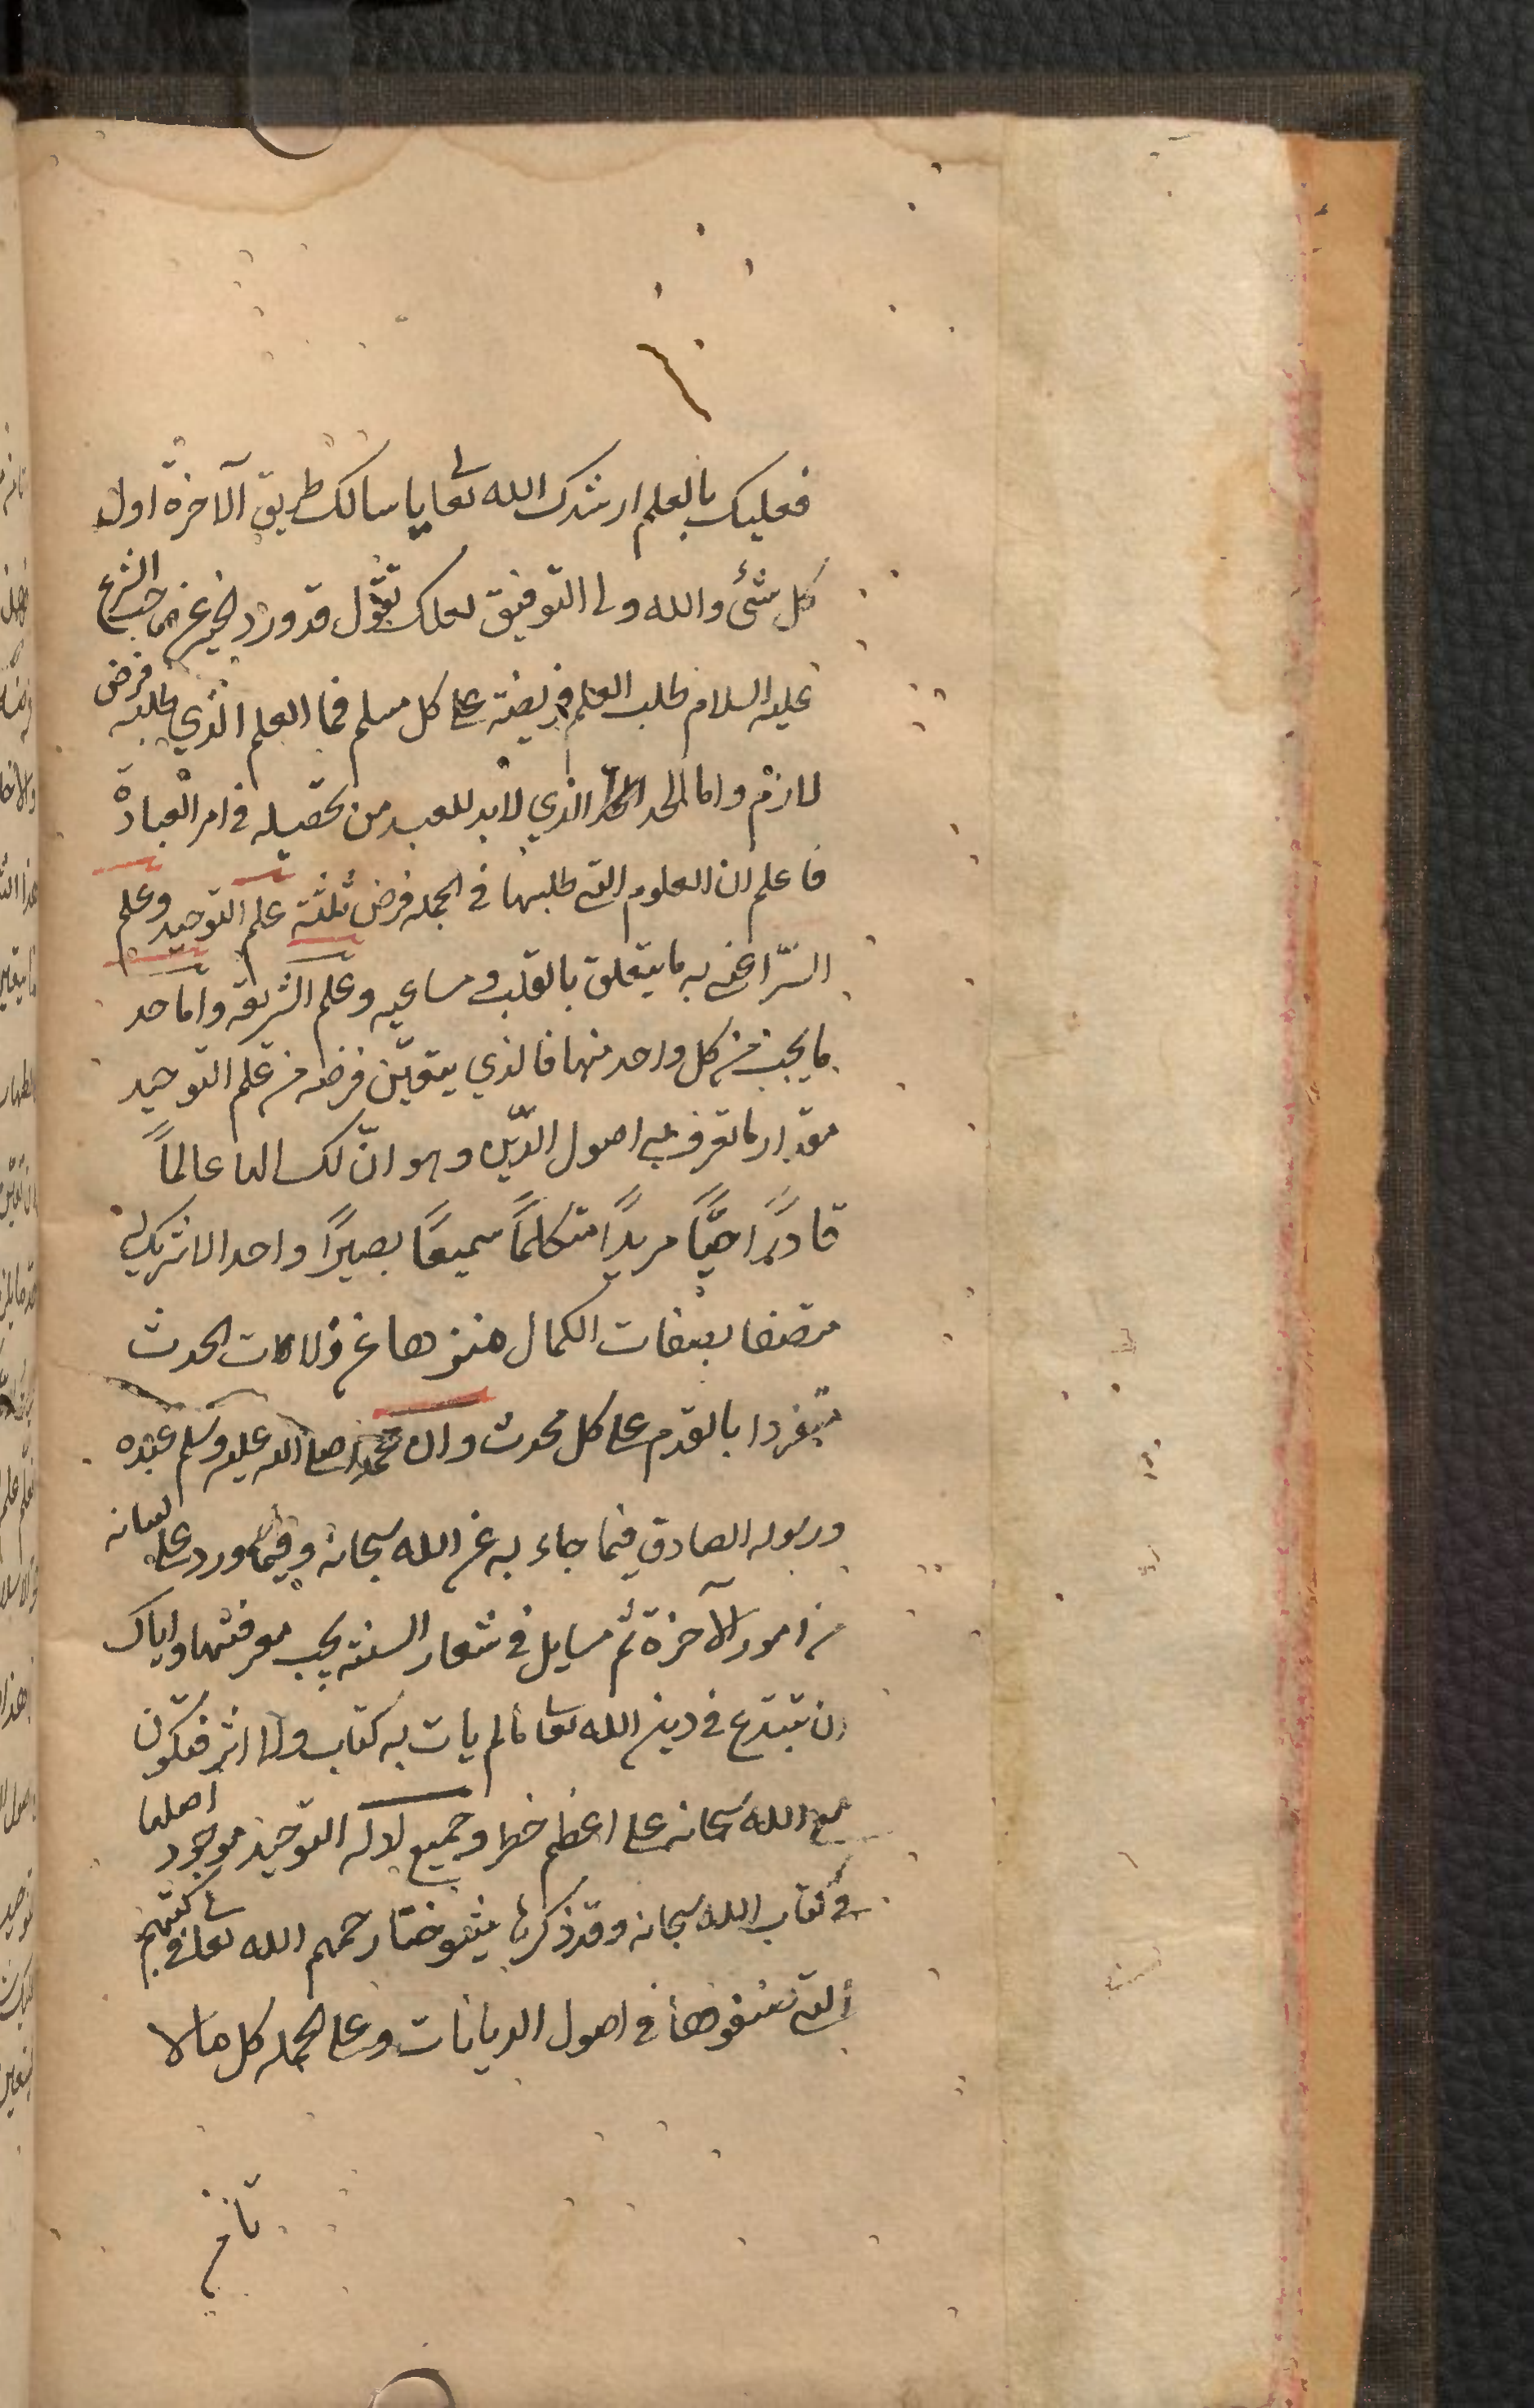 فعليك بالعلم ارشدك الله تعا يا سالك طريق الآخرة اول
كل شئ والله ولى التوفيق لعلك تقول قد ورد الخبر عن صاحب الشرع
عليه السلام طلب العلم فريضة على كل مسلم فما العلم الذي طلبه فرض
لازم واما الحد الذي لا بد للعبد من تحصيله في امر العبادة
فاعلم ان العلوم التى طلبها في الجمله فرض ثلثة علم التوحيد وعلم
السرّ اعنى به ما يتعلق بالقلب و مساعيه وعلم الشريعة واما حد
ما يجب من كل واحد منها فالذي يتعيّن فرضه من علم التوحيد
مقدار ما تعرف به اصول الدّين وهو انّ لك الها عالماً
قادرًا حيًّا مريدًا متكلمًا سميعًا بصيرًا واحدا لا شريك له
متصفا بصفات الكمال منزها عن دلالات الحدث
متفردا بالقدم على كل محدث وان محمدا صلى الله عليه وسلم عبده
ورسوله الصادق فيما جاء به عن الله سبحانه وفيما ورد على لسانه
من امور الآخرة ثم مسايل في شعار السنة يجب معرفتها واياك
ان تبتدع في دين الله تعا مالم يات به كتاب ولا اثر فتكون
مع الله سبحانه على اعظم خطر وجميع ادلة التوحيد موجود اصلها
في كتاب الله سبحانه وقد ذكرها شيوخنا رحمهم الله تعا في كتبهم
التى صنفوها في اصول الديانات وعلى الجمله كل ما لا